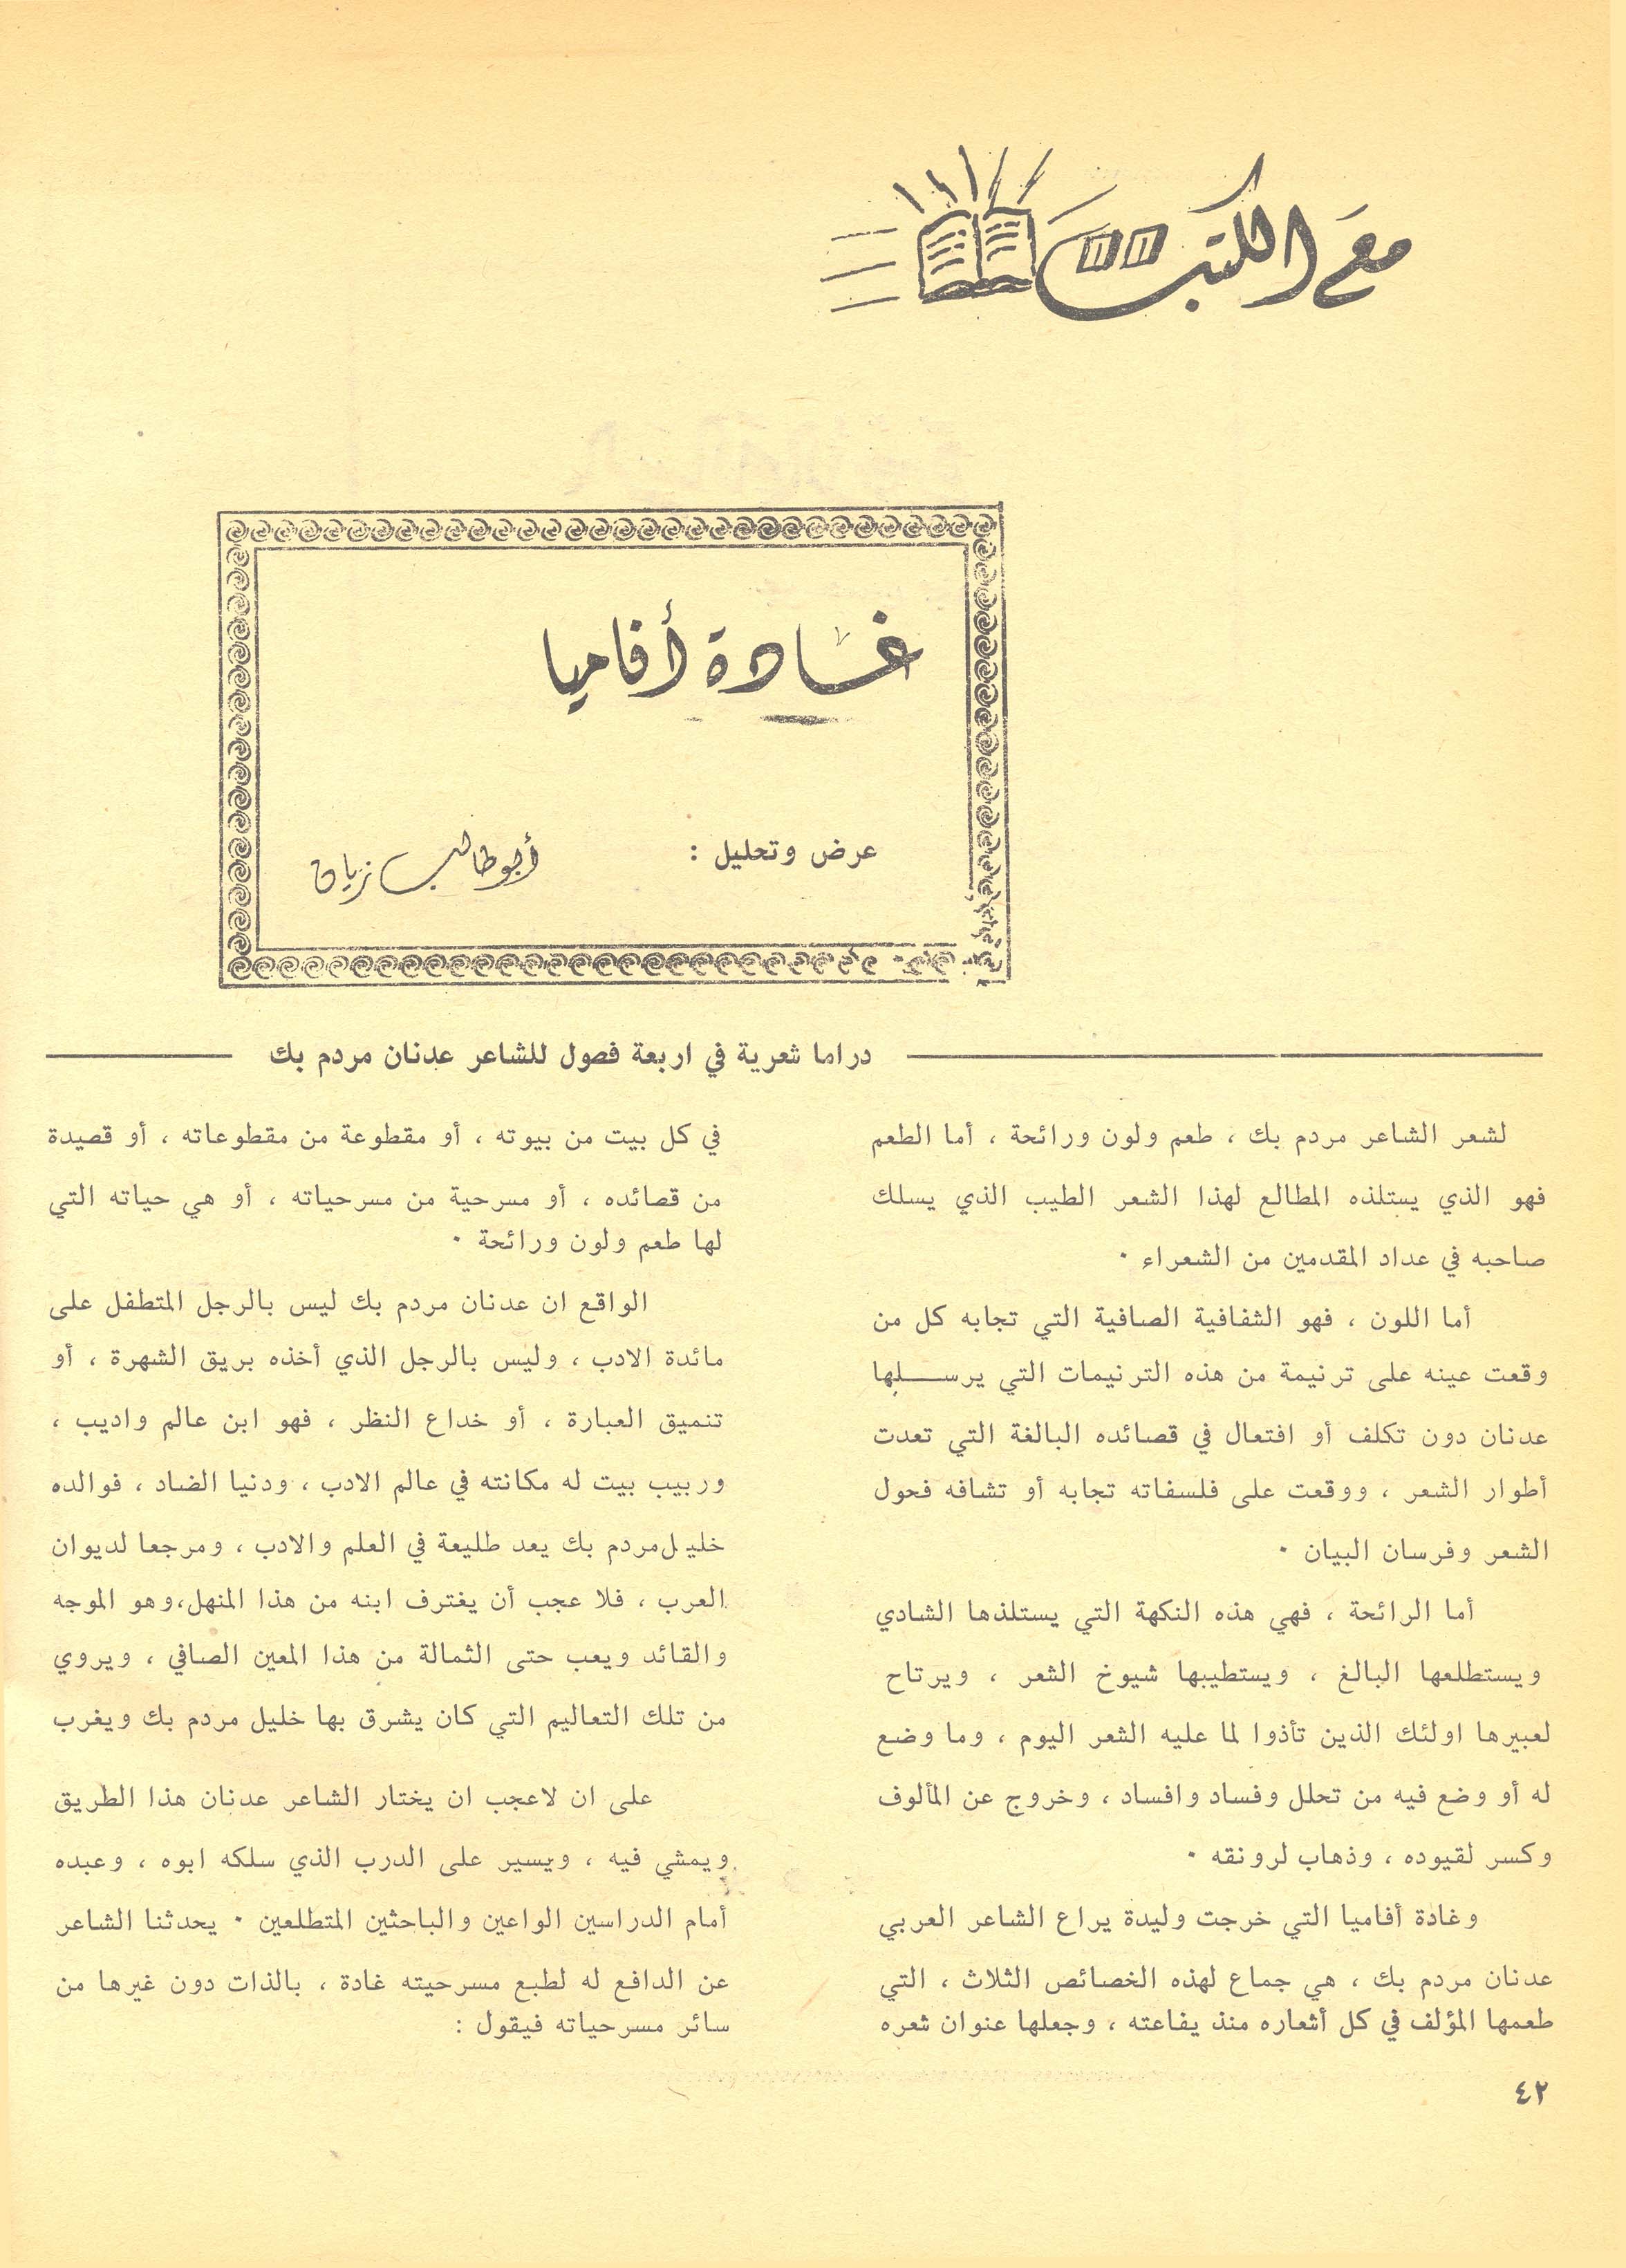 مع الكتب
غادة أفاميا
عرض وتحليل : أبو طالب زيان
دراما شعرية في اربعة فصول للشاعر عدنان مردم بك
لشعر الشاعر مردم بك ، طعم ولون ورائحة ، أما الطعم
فهو الذي يستلذه المطالع لهذا الشعر الطيب الذي يسلك
صاحبه في عداد المقدمين من الشعراء .
أما اللون ، فهو الشفافية الصافية التي تجابه كل من
وقعت عينه على ترنيمة من هذه الترنيمات التي يرسلها
عدنان دون تكلف أو افتعال في قصائده البالغة التي تعدت
أطوار الشعر ، ووقعت على فلسفاته تجابه أو تشافه فحول
الشعر وفرسان البيان .
أما الرائحة ، فهي هذه النكهة التي يستلذها الشادي
ويستطلعها البالغ ، ويستطيبها شيوخ الشعر ، ويرتاح
لعبيرها اولئك الذين تأذوا لما عليه الشعر اليوم ، وما وضع
له أو وضع فيه من تحلل وفساد وافساد ، وخروج عن المألوف
وكسر لقيوده ، وذهاب لرونقه .
وغادة أفاميا التي خرجت وليدة يراع الشاعر العربي
عدنان مردم بك ، هي جماع لهذه الخصائص الثلاث ، التي
طعمها المؤلف في كل أشعاره منذ يفاعته ، وجعلها عنوان شعره
في كل بيت من بيوته ، أو مقطوعة من مقطوعاته ، أو قصيدة
من قصائده ، أو مسرحية من مسرحياته ، أو هي حياته التي
لها طعم ولون ورائحة .
الواقع ان عدنان مردم بك ليس بالرجل المتطفل على
مائدة الادب ، وليس بالرجل الذي أخذه بريق الشهرة ، أو
تنميق العبارة ، أو خداع النظر ، فهو ابن عالم واديب ،
وربيب بيت له مكانته في عالم الادب ، ودنيا الضاد ، فوالده
خليل مردم بك يعد طليعة في العلم والادب ، ومرجعا لديوان
العرب ، فلا عجب أن يغترف ابنه من هذا المنهل، وهو الموجه
والقائد ويعب حتى الثمالة من هذا المعين الصافي ، ويروي
من تلك التعاليم التي كان يشرق بها خليل مردم بك ويغرب
على ان لاعجب ان يختار الشاعر عدنان هذا الطريق
ويمشي فيه ، ويسير على الدرب الذي سلكه ابوه ، وعبده
أمام الدراسين الواعين والباحثين المتطلعين . يحدثنا الشاعر
عن الدافع له لطبع مسرحيته غادة ، بالذات دون غيرها من
سائر مسرحياته فيقول :
٤٢